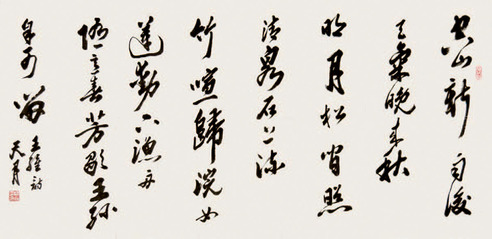 空山新雨後
天氣晚來秋
明月松間照
清泉石上流
竹喧歸浣女
蓮動下漁舟
隨意春芳歇王孫
自可留
王維詩